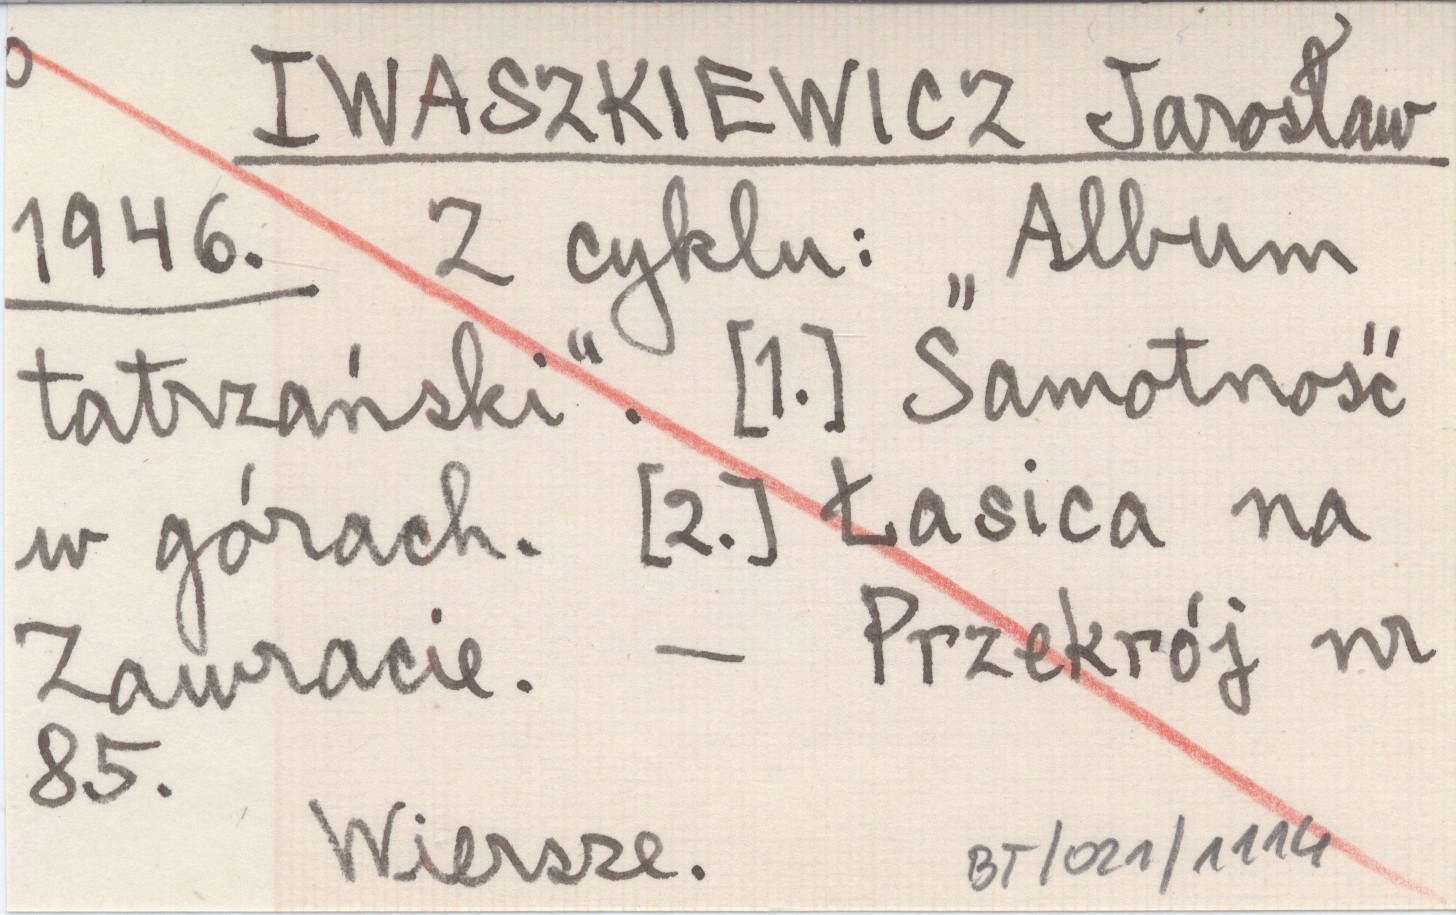 o IWASZKIEWICZ Jarosław
1946. Z cyklu: „Album
tatrzański". [1.] Samotność
w górach. [2.] Łasica na
Zawracie. — Przekrój nr
85.
Wiersze.
BT/021/1114